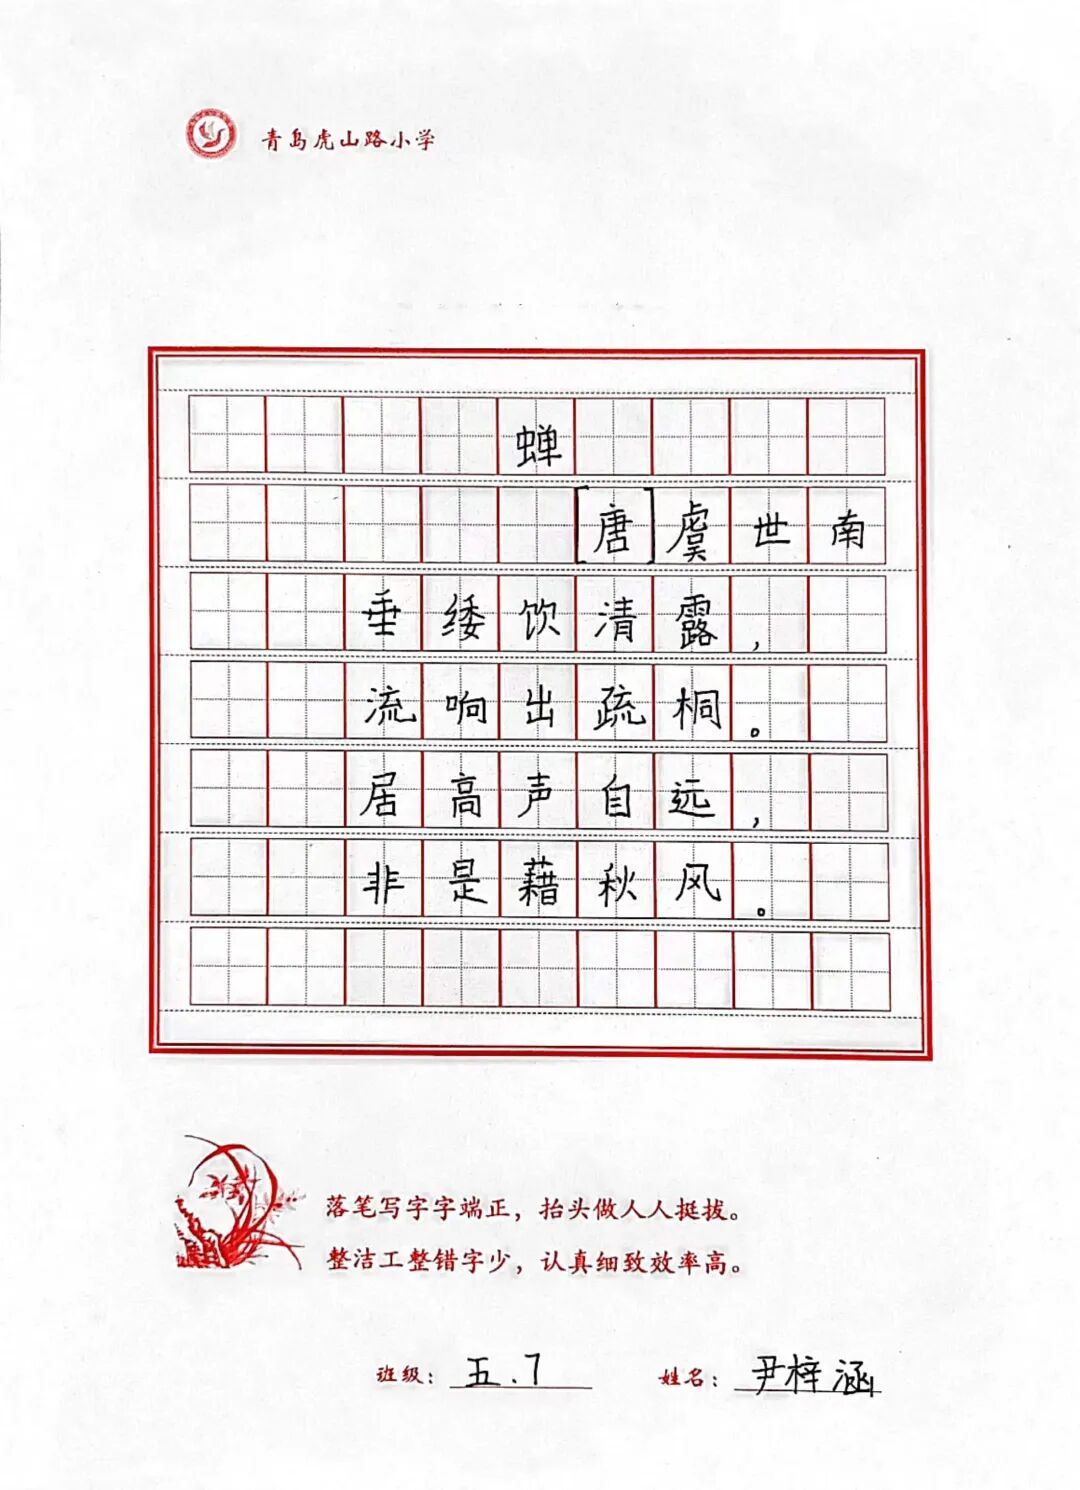 青岛虎山路小学
蝉
[唐]虞世南
垂緌饮清露，
流响出疏桐。
居高声自远，
非是藉秋风。
落笔写字字端正，抬头做人人挺拔。
整洁工整错字少，认真细致效率高。
班级：五.7 姓名：尹梓涵